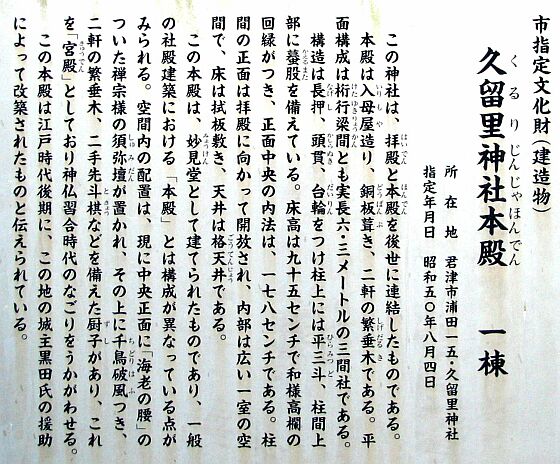 市指定文化財(建造物)
くるりじんじゃほんでん
久留里神社本殿　一棟
所在地　君津市浦田一五・久留里神社
指定年月日　昭和五〇年八月四日
この神社は、拝殿と本殿を後世に連結したものである。
本殿は入母屋造り、銅板葺き、二軒の繁垂木である。平
面構成は桁行梁間とも実長六・三メートルの三間社である。
構造は長押、頭貫、台輪をつけ柱上には平三斗、柱間上
部に蟇股を備えている。床高は九十五センチで和様高欄の
回縁がつき、正面中央の内法は、一七八センチである。柱
間の正面は拝殿に向かって開放され、内部は広い一室の空
間で、床は拭板敷き、天井は格天井である。
この本殿は、妙見堂として建てられたものであり、一般
の社殿建築における「本殿」とは構成が異なっている点が
みられる。空間内の配置は、現に中央正面に「海老の腰」の
ついた禅宗様の須弥壇が置かれ、その上に千鳥破風つき、
二軒の繁垂木、二手先斗栱などを備えた厨子があり、これ
を「宮殿」としており神仏習合時代のなごりをうかがわせる。
この本殿は江戸時代後期に、この地の城主黒田氏の援助
によって改築されたものと伝えられている。